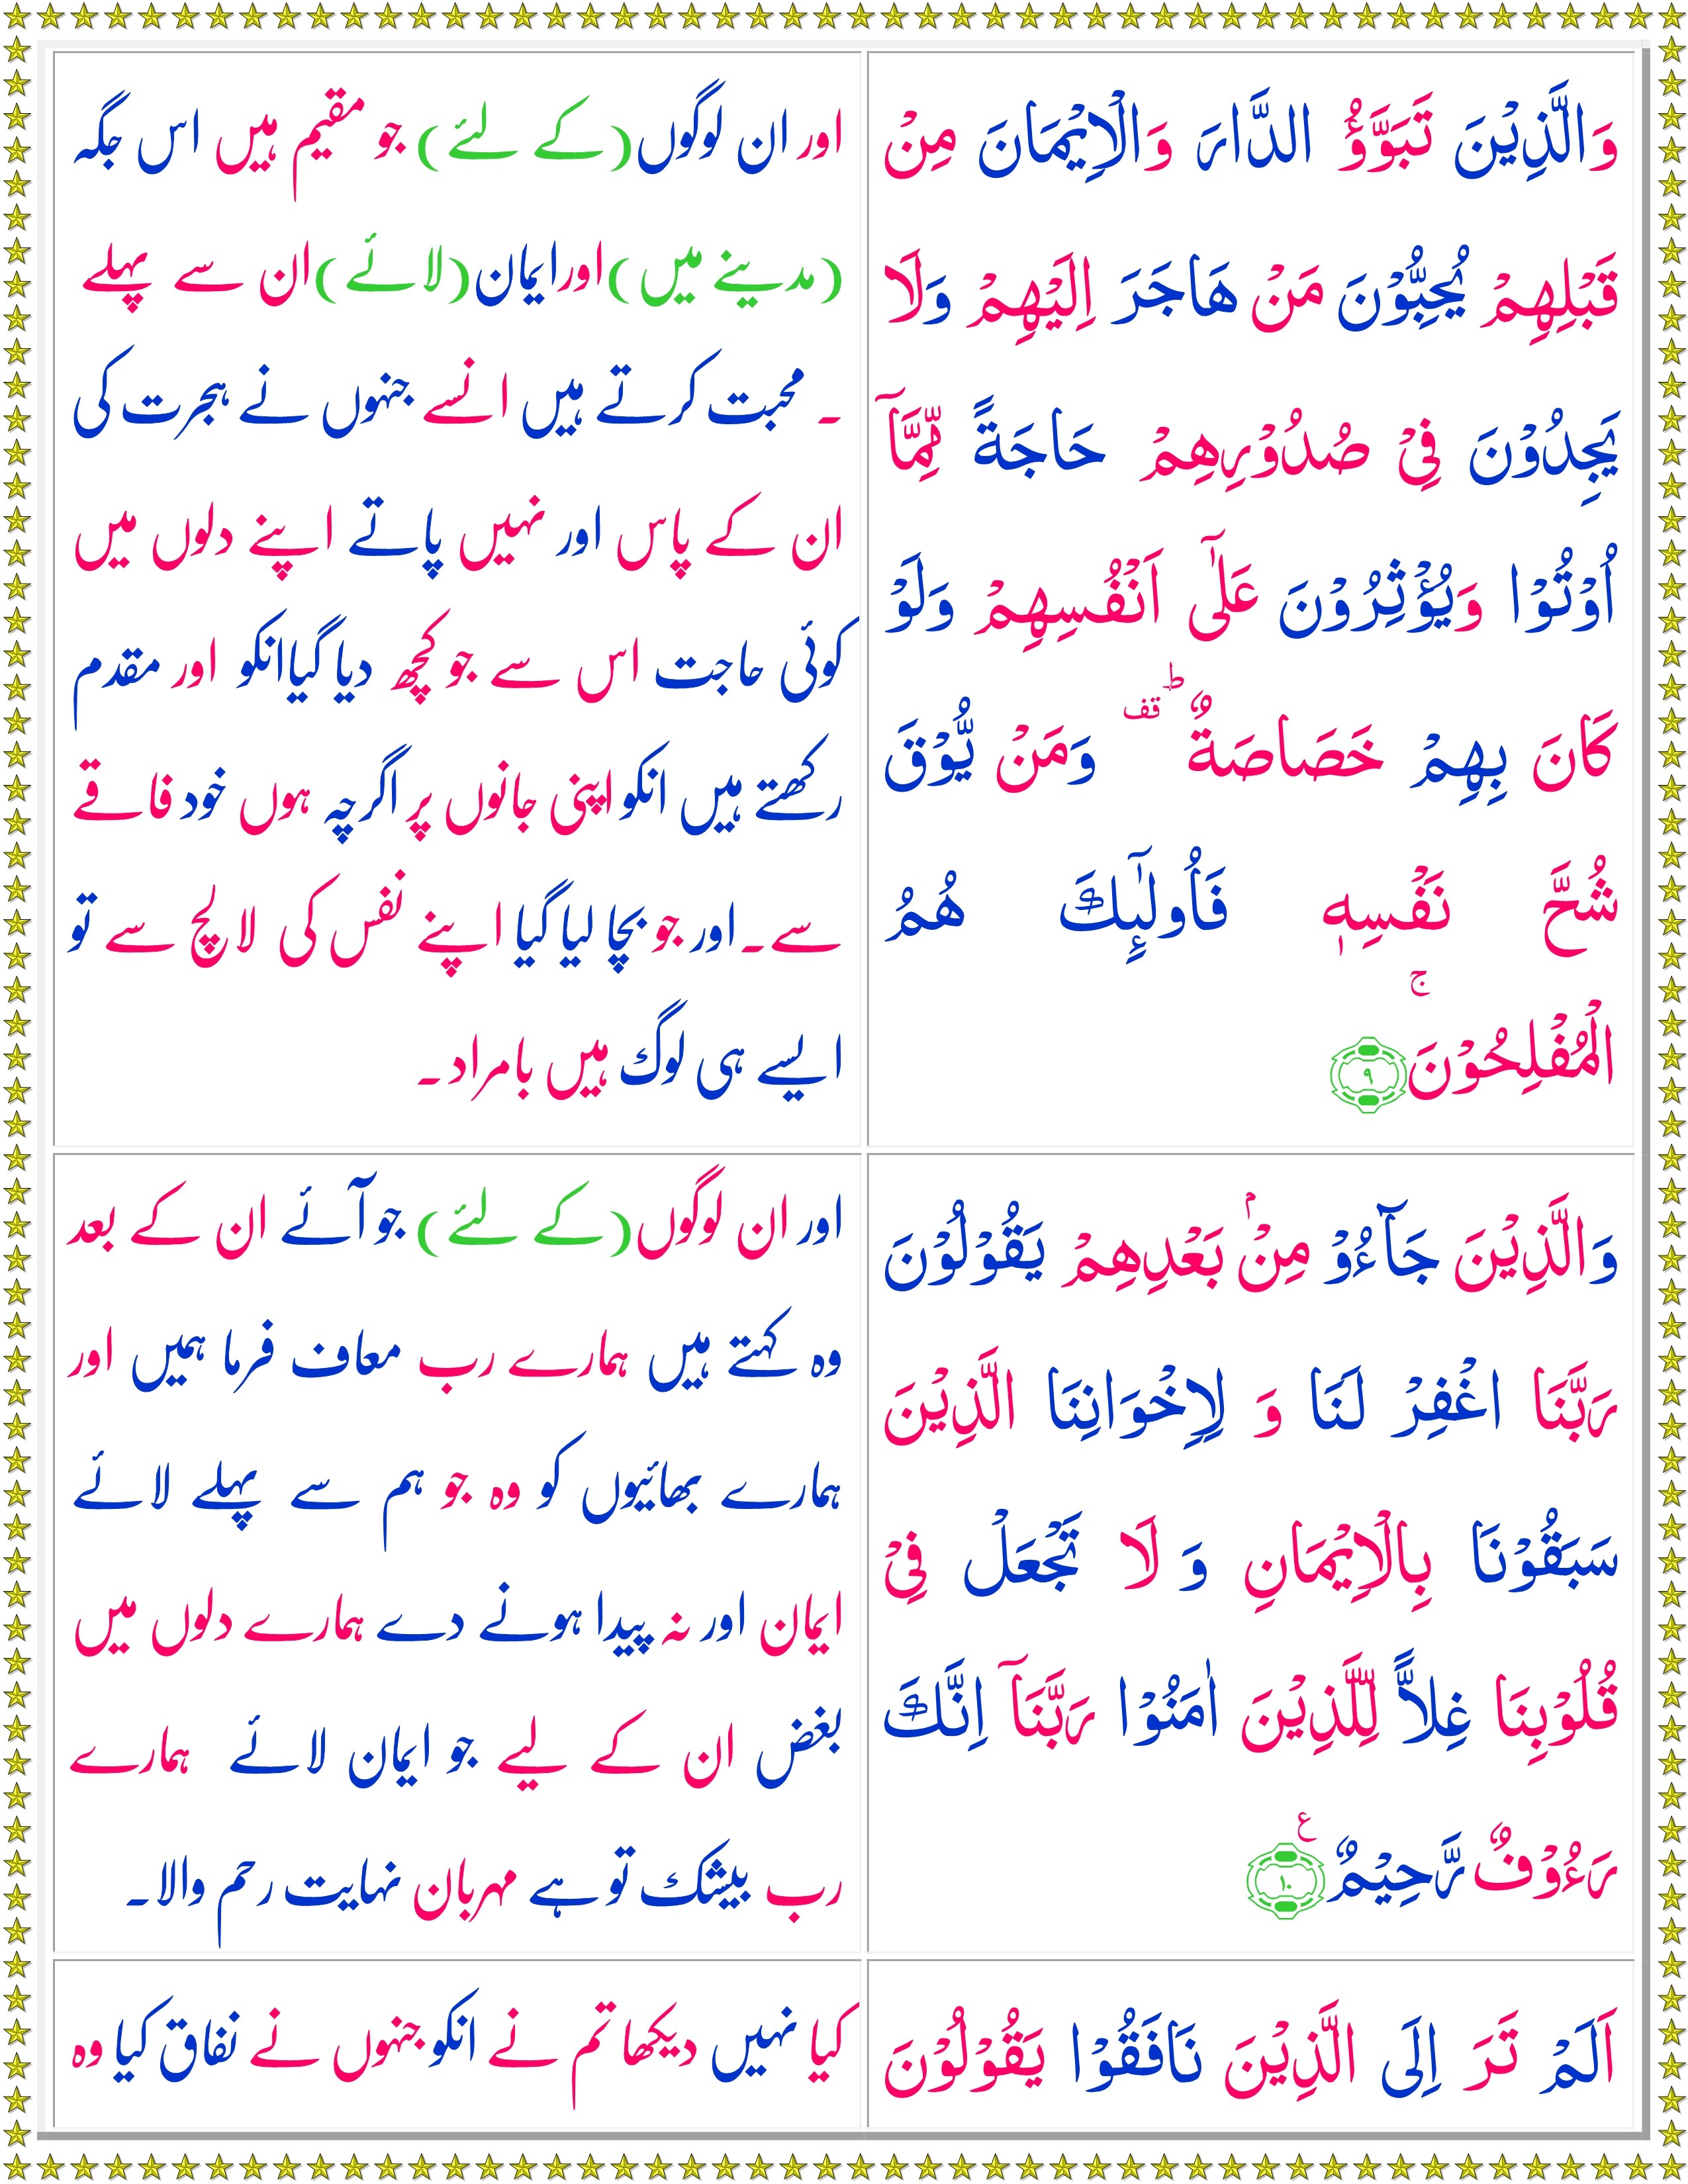 وَالَّذِیْنَ تَبَوَّؤُ الدَّارَ وَالْاِیْمَانَ مِنْ
قَبْلِهِمْ یُحِبُّوْنَ مَنْ هَاجَرَ اِلَیْهِمْ وَلَا
یَجِدُوْنَ فِیْ صُدُوْرِهِمْ حَاجَةً مِّمَّاۤ
اُوْتُوْا وَیُؤْثِرُوْنَ عَلٰۤی اَنْفُسِهِمْ وَلَوْ
كَانَ بِهِمْ خَصَاصَةٌ ؕ قف وَمَنْ یُّوْقَ
شُحَّ نَفْسِهٖ فَاُولٰٓىِٕكَ هُمُ
الْمُفْلِحُوْنَ ۚ ۹
اور ان لوگوں (کے لئے) جو مقیم ہیں اس جگہ
(مدینے میں) اور ایمان (لائے) ان سے پہلے
۔ محبت کرتے ہیں انسے جنہوں نے ہجرت کی
ان کے پاس اور نہیں پاتے اپنے دلوں میں
کوئی حاجت اس سے جو کچھ دیا گیا انکو اور مقدم
رکھتے ہیں انکو اپنی جانوں پر اگرچہ ہوں خود فاقے
سے۔ اور جو بچا لیا گیا اپنے نفس کی لالچ سے تو
ایسے ہی لوگ ہیں بامراد۔
وَالَّذِیْنَ جَآءُوْ مِنْۢ بَعْدِهِمْ یَقُوْلُوْنَ
رَبَّنَا اغْفِرْ لَنَا وَ لِاِخْوَانِنَا الَّذِیْنَ
سَبَقُوْنَا بِالْاِیْمَانِ وَ لَا تَجْعَلْ فِیْ
قُلُوْبِنَا غِلاًّ لِّلَّذِیْنَ اٰمَنُوْا رَبَّنَاۤ اِنَّكَ
رَءُوْفٌ رَّحِیْمٌ ع ۱۰
اور ان لوگوں (کے لئے) جو آئے ان کے بعد
وہ کہتے ہیں ہمارے رب معاف فرما ہمیں اور
ہمارے بھائیوں کو وہ جو ہم سے پہلے لائے
ایمان اور نہ پیدا ہونے دے ہمارے دلوں میں
بغض ان کے لیے جو ایمان لائے ہمارے
رب بیشک تو ہے مہربان نہایت رحم والا۔
اَلَمْ تَرَ اِلَی الَّذِیْنَ نَافَقُوْا یَقُوْلُوْنَ
کیا نہیں دیکھا تم نے انکو جنہوں نے نفاق کیا وہ